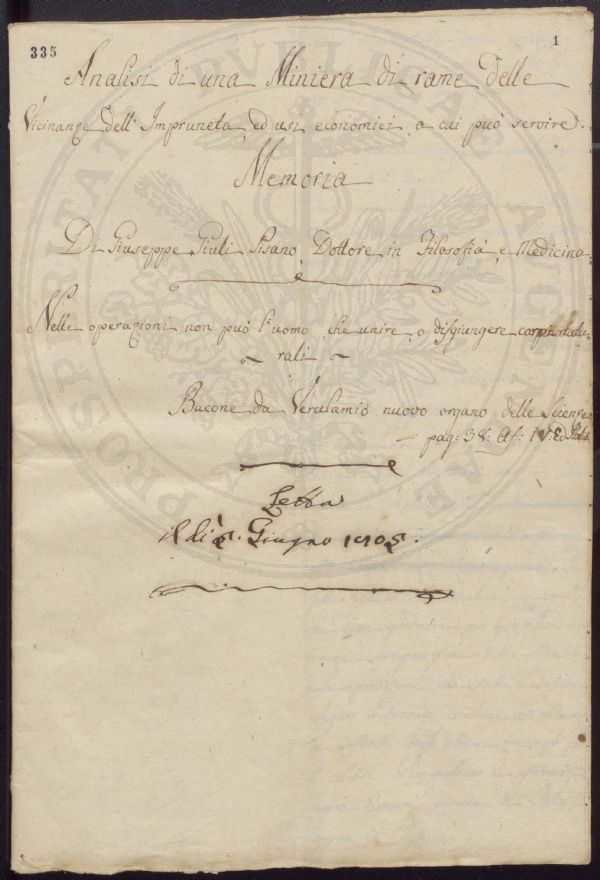 335
1
Analisi di una Miniera di rame delle
Vicinanze dell' Impruneta, ed usi economici, a cui può servire.
Memoria
Di Giuseppe Giuli Pisano, Dottore in Filosofia, e Medicina
Nelle operazioni non può l'uomo, che unire, o disgiungere corpi natu
rali
Bacone da Verulamio nuovo organo delle Scienze
pag: 38: Af: IV: Ed
Letta
il dì 5. Giugno 1805.
PROSPERITATI PUBLICAE AUGENDAE